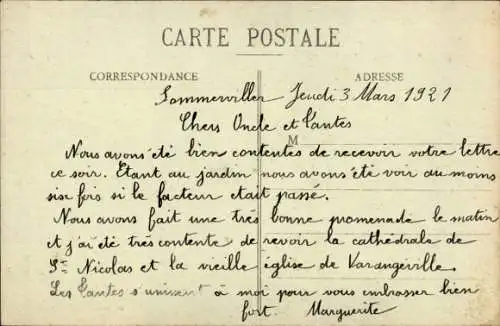 CARTE POSTALE
CORRESPONDANCE
ADRESSE
Sommerviller Jeudi 3 Mars 1921
Chers Oncle et Tantes
M
Nous avons été bien contentes de recevoir votre lettre
ce soir. Etant au jardin nous avons été voir au moins
six fois si le facteur etait passé.
Nous avons fait une très bonne promenade le matin
et j'ai été très contente de revoir la cathédrale de
St Nicolas et la vieille église de Varangéville.
Les Tantes s'unissent à moi pour vous embrasser bien
fort. Marguerite